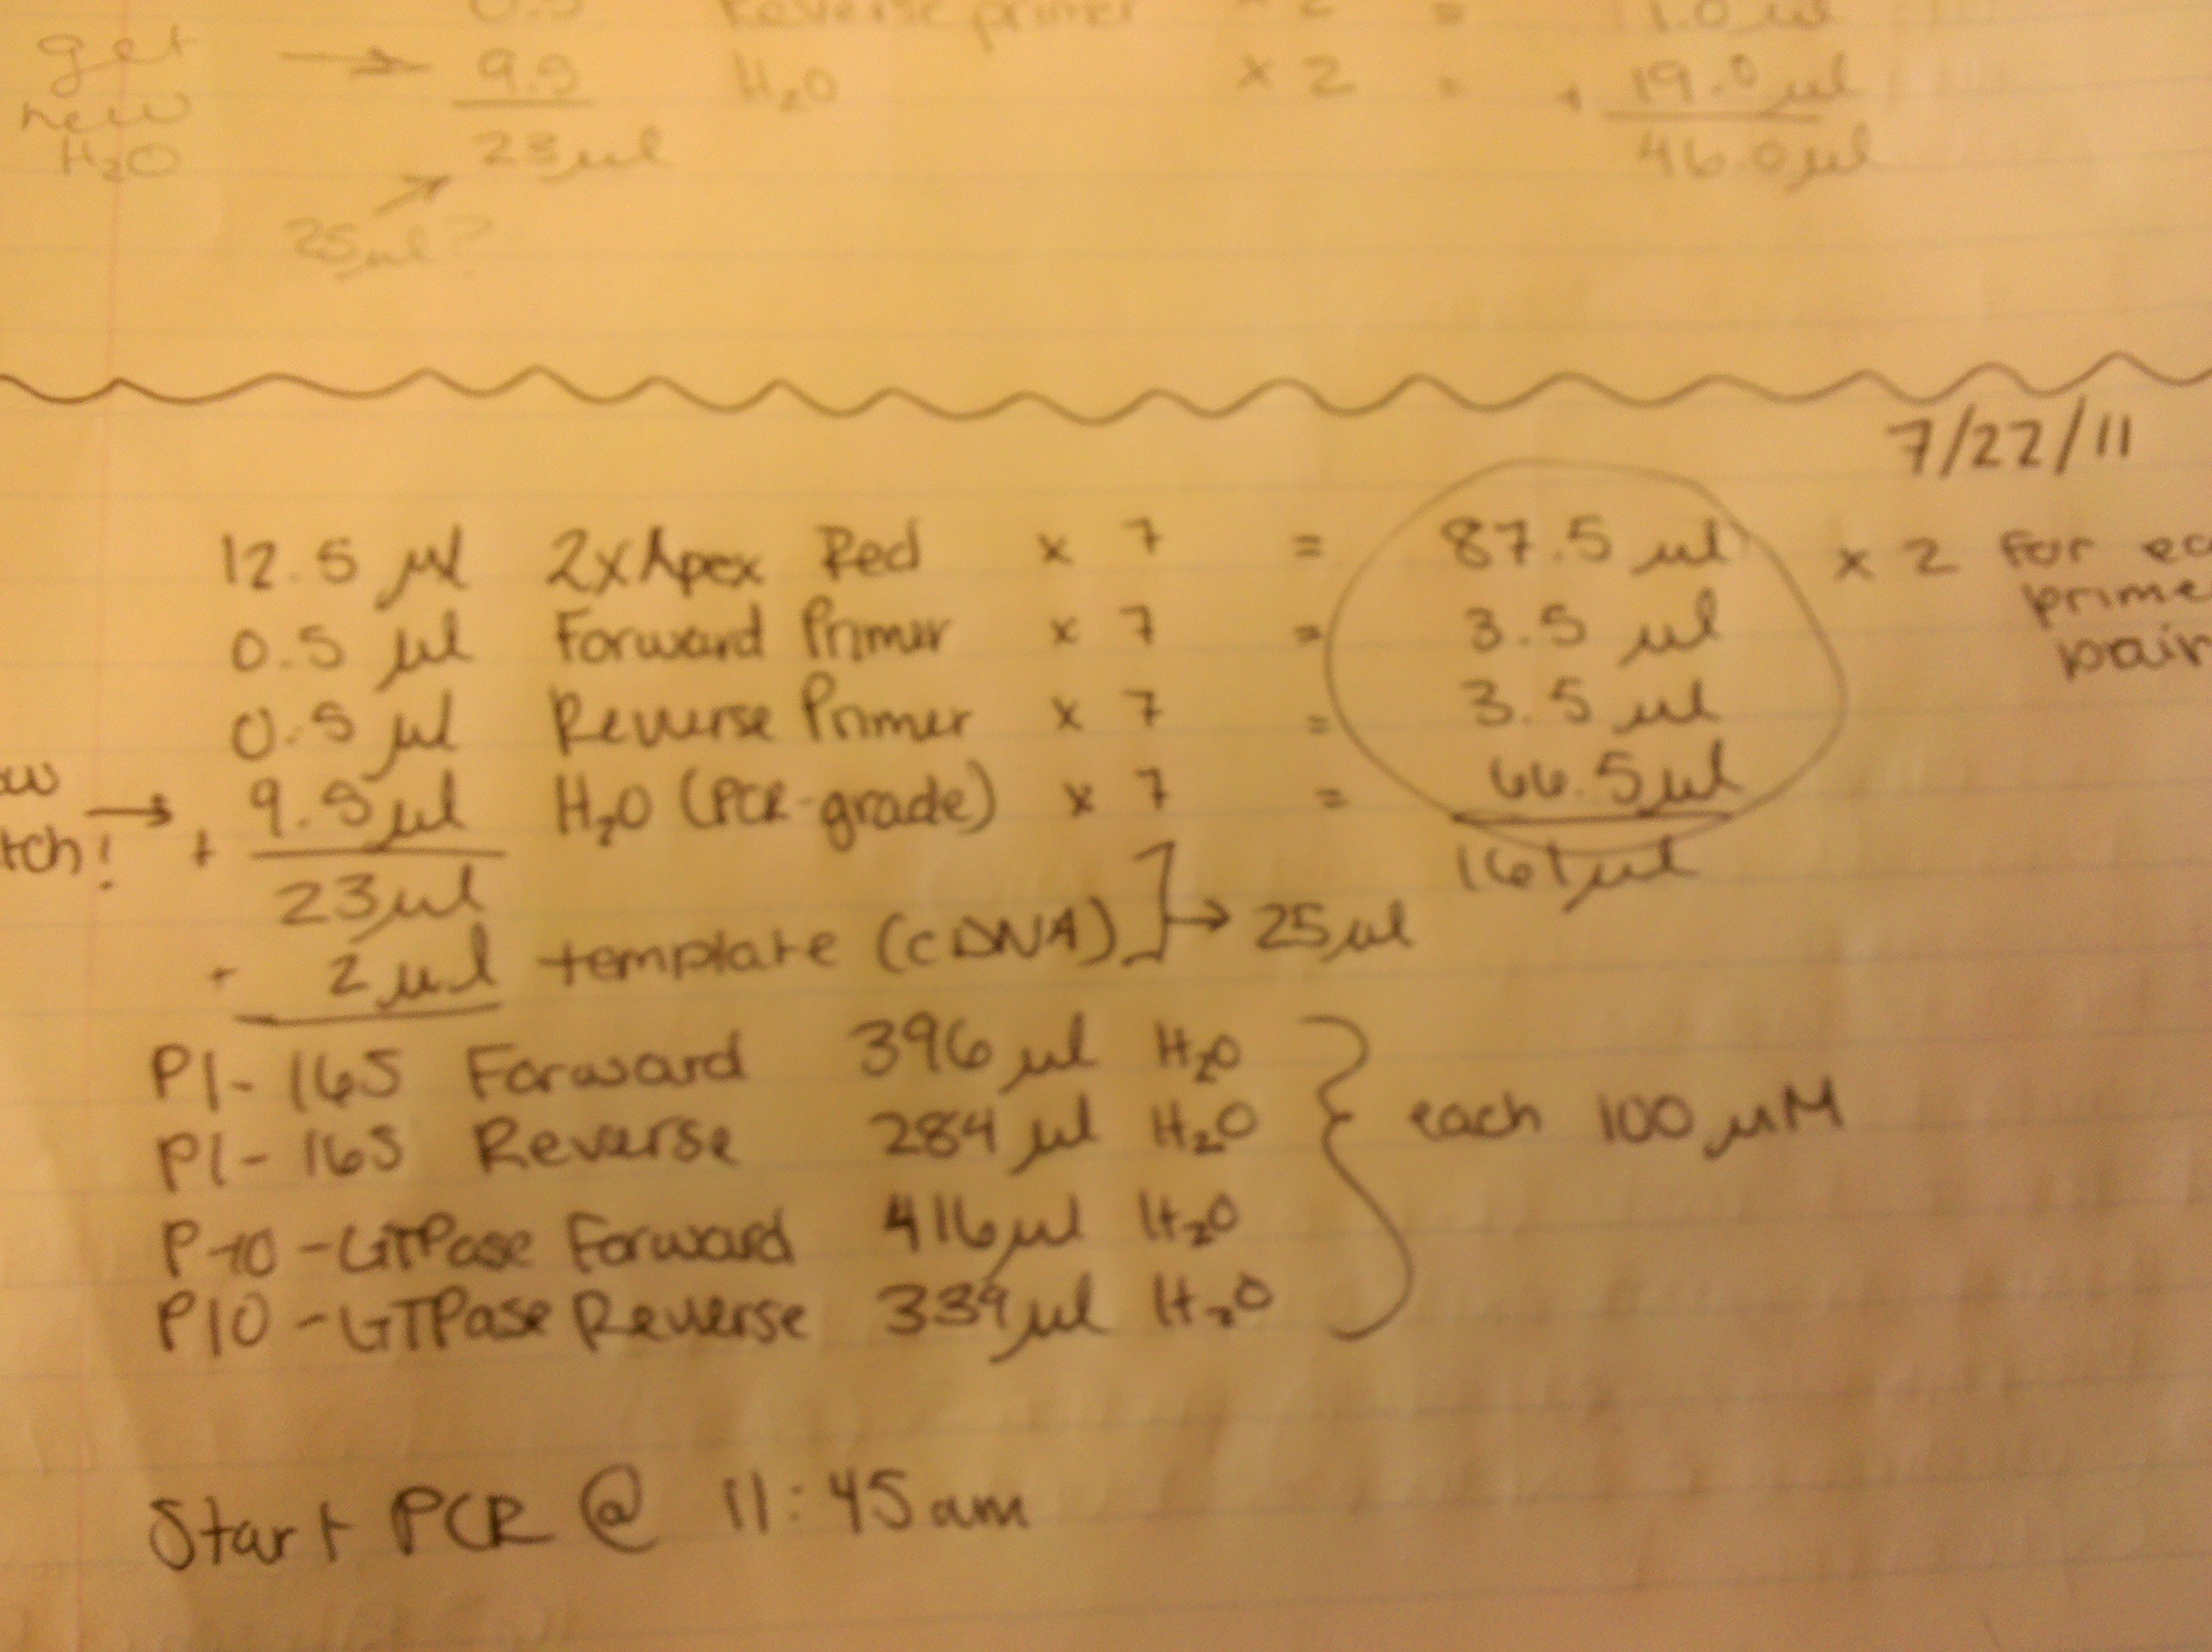 0.5 Reverse primer x 2 = 1.0 µl
get → 9.5 H₂O x 2 = + 19.0 µl
new
H₂O 23 µl 46.0 µl
25 µl?
7/22/11
12.5 µl 2x Apex Red x 7 = 87.5 µl x 2 for
0.5 µl Forward Primer x 7 = 3.5 µl
0.5 µl Reverse Primer x 7 = 3.5 µl
→ + 9.5 µl H₂O (PCR-grade) x 7 = 66.5 µl
23 µl 161 µl
+ 2 µl template (cDNA) ] → 25 µl
P1- 16S Forward 396 µl H₂O
P1- 16S Reverse 284 µl H₂O } each 100 µM
P10 - GTPase Forward 416 µl H₂O
P10 - GTPase Reverse 339 µl H₂O
Start PCR @ 11:45 am